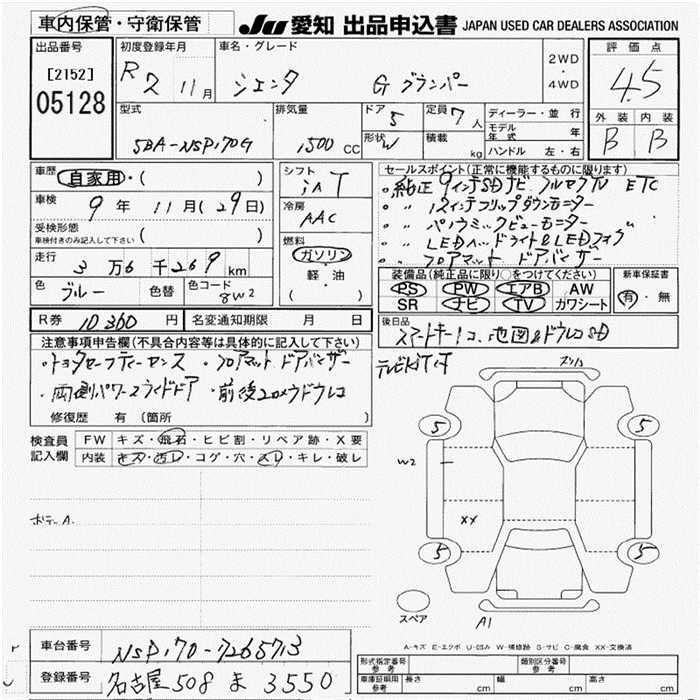 車内保管・守衛保管
JU 愛知 出品申込書 JAPAN USED CAR DEALERS ASSOCIATION
出品番号
[2152]
05128
初度登録年月
R2 11月
車名・グレード
シエンタ G グランパー
2WD
・
4WD
評価点
4.5
外装 内装
B B
型式
5BA-NSP170G
排気量
1500 CC
ドア 5
形状 W
定員 7人
積載 kg
ディーラー・並行
モデル年式 年
ハンドル 左・右
車歴 自家用・( )
車検 9年 11月(29日)
受検形態
車検付きのみ記入して下さい ( )
走行 3万6千269km
色 ブルー 色替 色コード 8W2
シフト
iAT
冷房
AAC
燃料
ガソリン
軽・油
( )
セールスポイント(正常に機能するものに限ります)
・純正9インチSDナビ フルセグTV ETC
・〃 12インチフリップダウンモニター
・〃 パノラミックビューモニター
・〃 LEDヘッドライト&LEDフォグ
・〃 フロアマット ドアバイザー
装備品(純正品に限り○をつけてください)
PS PW エアB AW
SR ナビ TV カワシート
新車保証書
有・無
R券 10360円 名変通知期限 月 日
後日品 スマートキー1コ、地図&ドラレコSD
テレビKIT付
注意事項申告欄(不具合内容等は具体的に記入して下さい)
・トヨタセーフティーセンス ・フロアマット ドアバイザー
・両側パワースライドドア ・前後2カメラドラレコ
修復歴 有(箇所 )
検査員
記入欄
FW キズ・飛石・ヒビ割・リペア跡・X要
内装 キズ・汚レ・コゲ・穴・スレ・キレ・破レ
ボディA.
スリキズ
5 5
W2
XX
5 5
スペア
A1
A-キズ E-エクボ U-凹み W-補修跡 S-サビ C-腐食 XX-交換済
車台番号 NSP170-7265713
登録番号 名古屋508 ま 3550
形式指定番号
参考
類別区分番号
参考
車庫証明用
参考
長さ cm 幅 cm 高さ cm